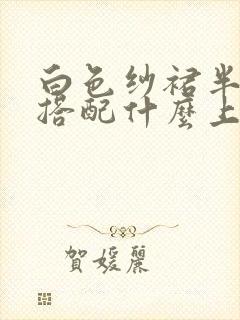 白色纱裙半
搭配什麼上
賀媛麗